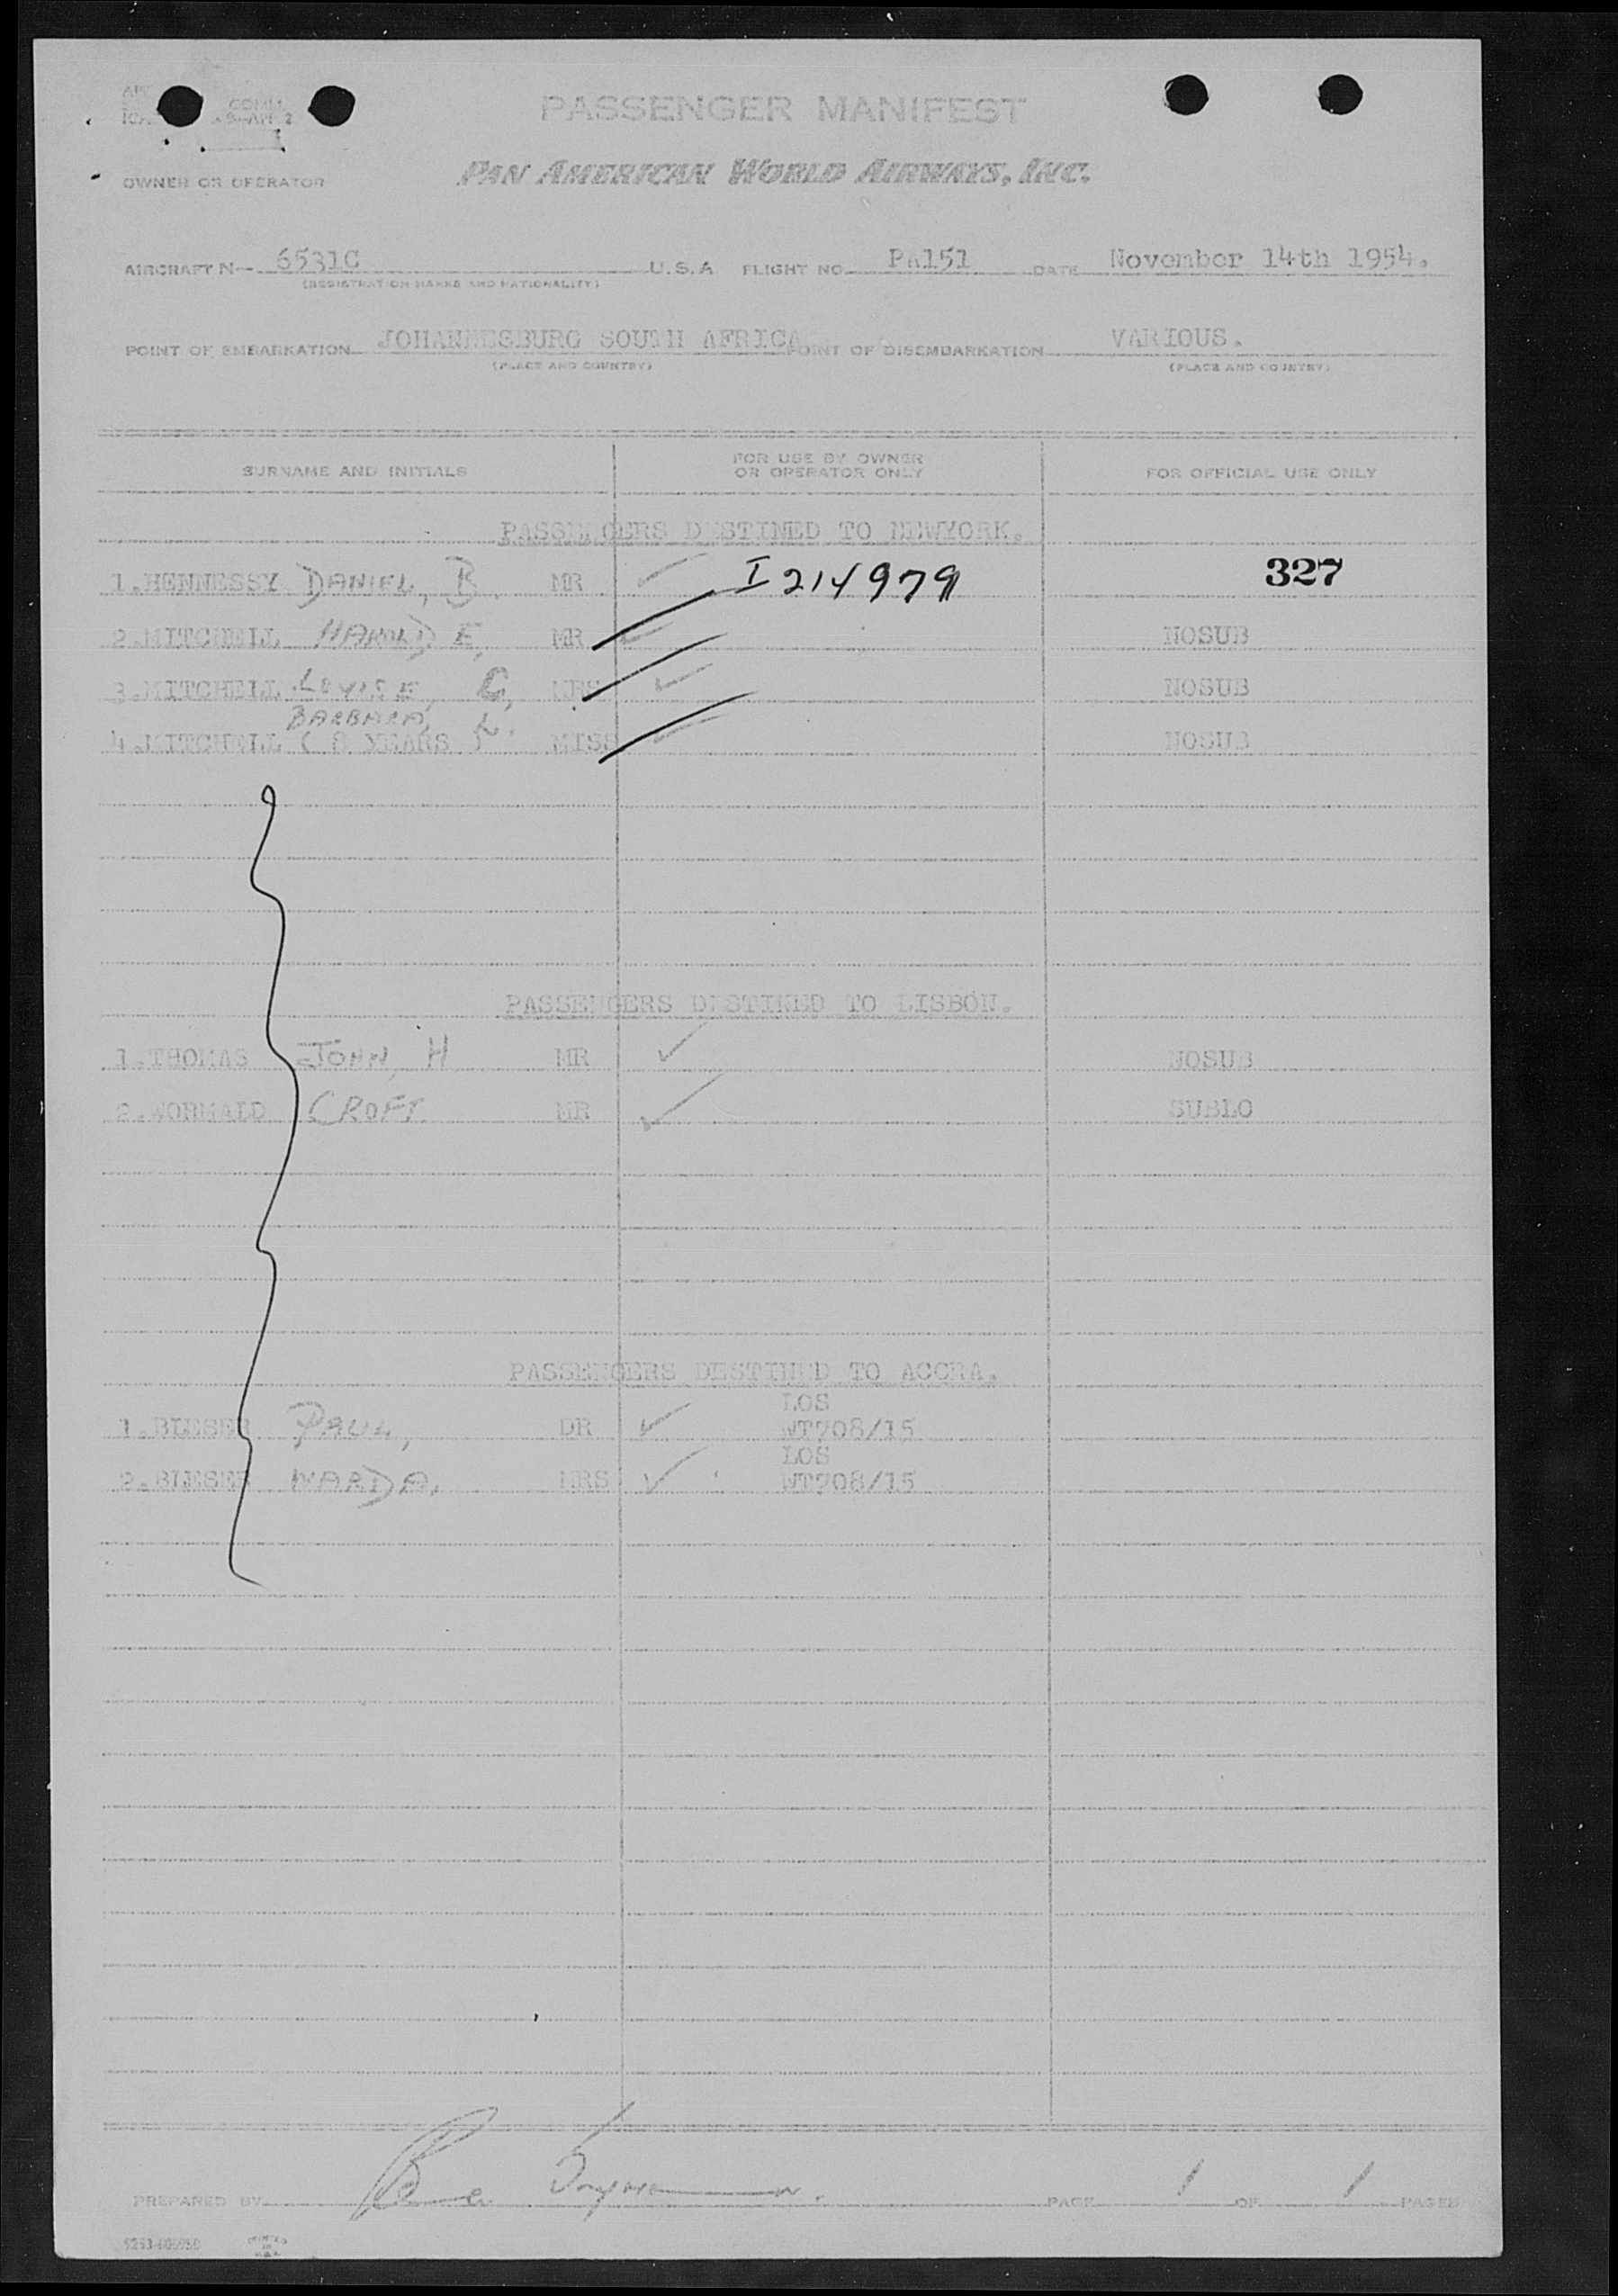 PASSENGER MANIFEST
OWNER OR OPERATOR PAN AMERICAN WORLD AIRWAYS, INC.
AIRCRAFT N- 6531C U.S.A FLIGHT NO. PA151 DATE November 14th 1954.
(REGISTRATION MARKS AND NATIONALITY)
POINT OF EMBARKATION JOHANNESBURG SOUTH AFRICA POINT OF DISEMBARKATION VARIOUS.
(PLACE AND COUNTRY) (PLACE AND COUNTRY)
SURNAME AND INITIALS FOR USE BY OWNER OR OPERATOR ONLY FOR OFFICIAL USE ONLY
PASSENGERS DESTINED TO NEWYORK.
1.HENNESSY DANIEL, B. MR I 214979 327
2.MITCHELL HAROLD E, MR NOSUB
3.MITCHELL LOUISE, C, MRS NOSUB
BARBARA, L.
4.MITCHELL ( 8 YEARS ) MISS NOSUB
PASSENGERS DESTINED TO LISBON.
1.THOMAS JOHN, H MR NOSUB
2.WORMALD CROFT. MR SUBLO
PASSENGERS DESTINED TO ACCRA.
LOS
1.BIESER PAUL, DR WT708/15
LOS
2.BIESER WARDA, MRS WT708/15
PREPARED BY PAGE 1 OF 1 PAGES